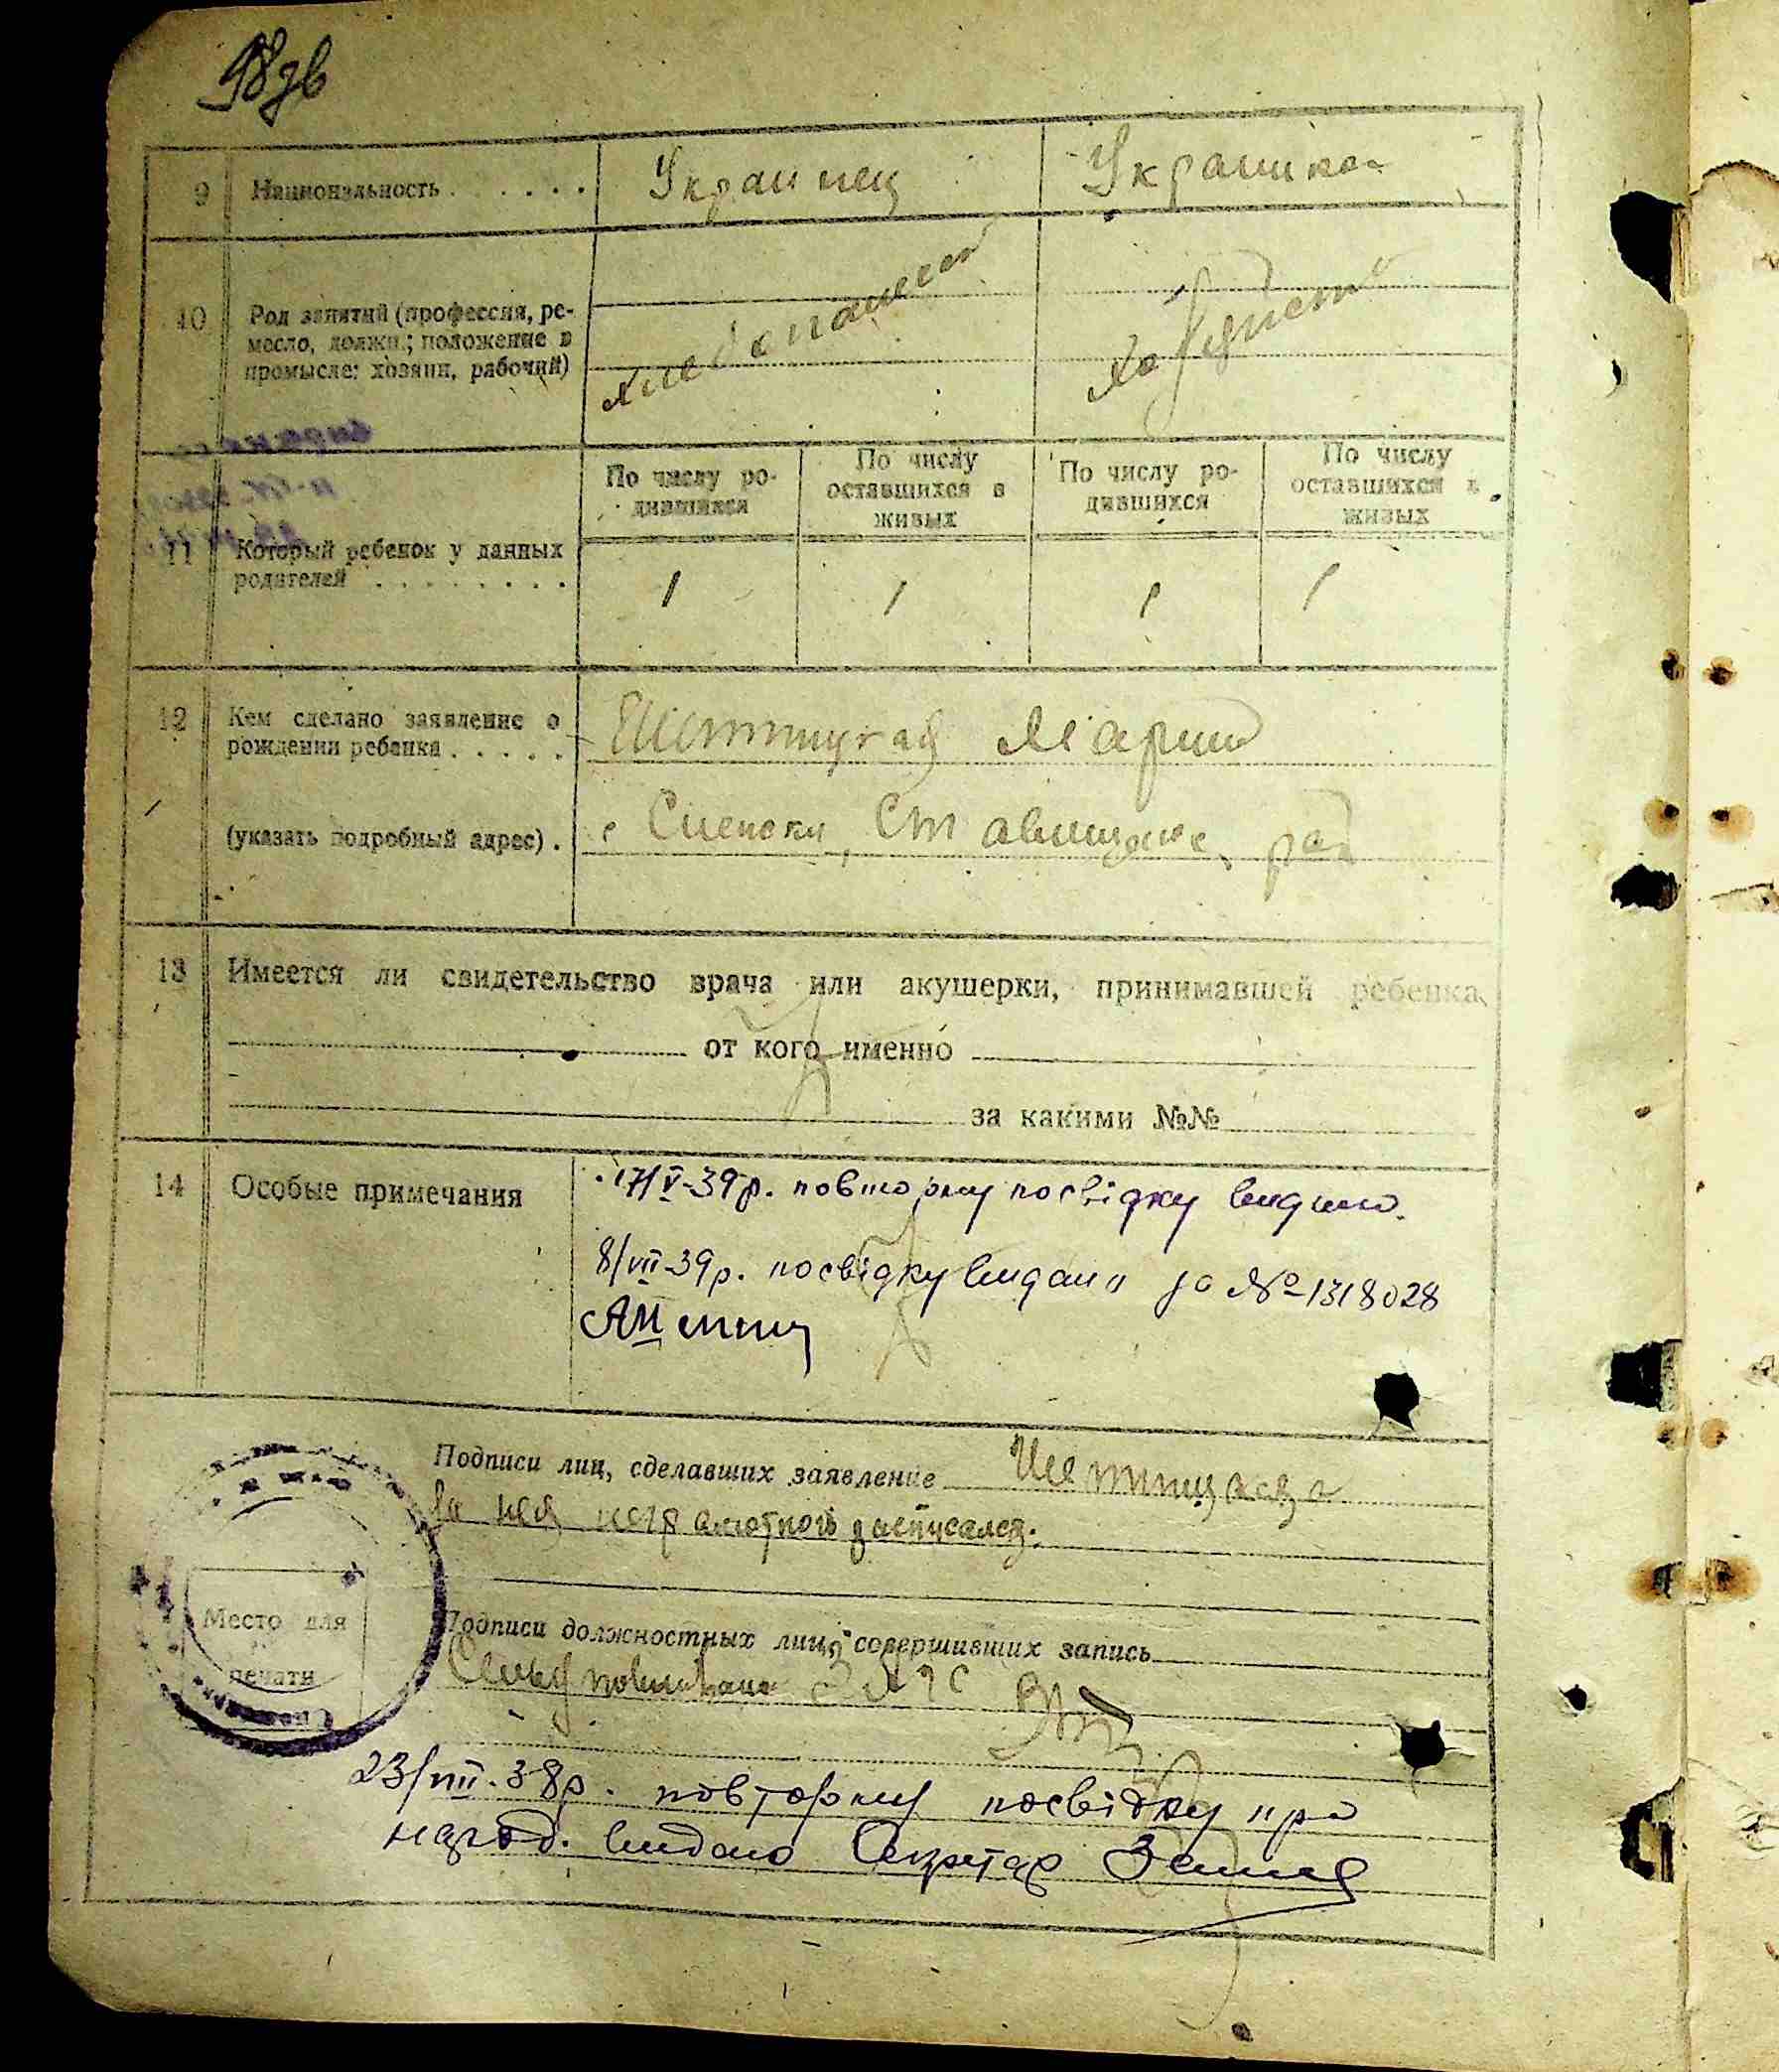 98зв
9 Национальность . . . . . . Украинец Украинка
10 Род занятий (профессия, ре-
месло, должн.; положение в
промысле: хозяин, рабочий)
хлебопашест
По числу ро-
дившихся
По числу
оставшихся в
живых
По числу ро-
дившихся
По числу
оставшихся в
живых
11 Который ребенок у данных
родителей . . . . . . . . 1 1 1 1
12 Кем сделано заявление о
рождении ребенка . . . . . Мария
(указать подробный адрес) .
13 Имеется ли свидетельство врача или акушерки, принимавшей ребенка,
от кого именно
за какими №№
14 Особые примечания 17/V-39р. повторну посвідку видано.
8/VII-39р. посвідку видали за №1318028
Подписи лиц, сделавших заявление
за нея неграмотной росписался.
Место для
печати
Подписи должностных лиц, совершивших запись
ЗАГС
23/VIII.38р. повторну посвідку про
народ. видано Секретар